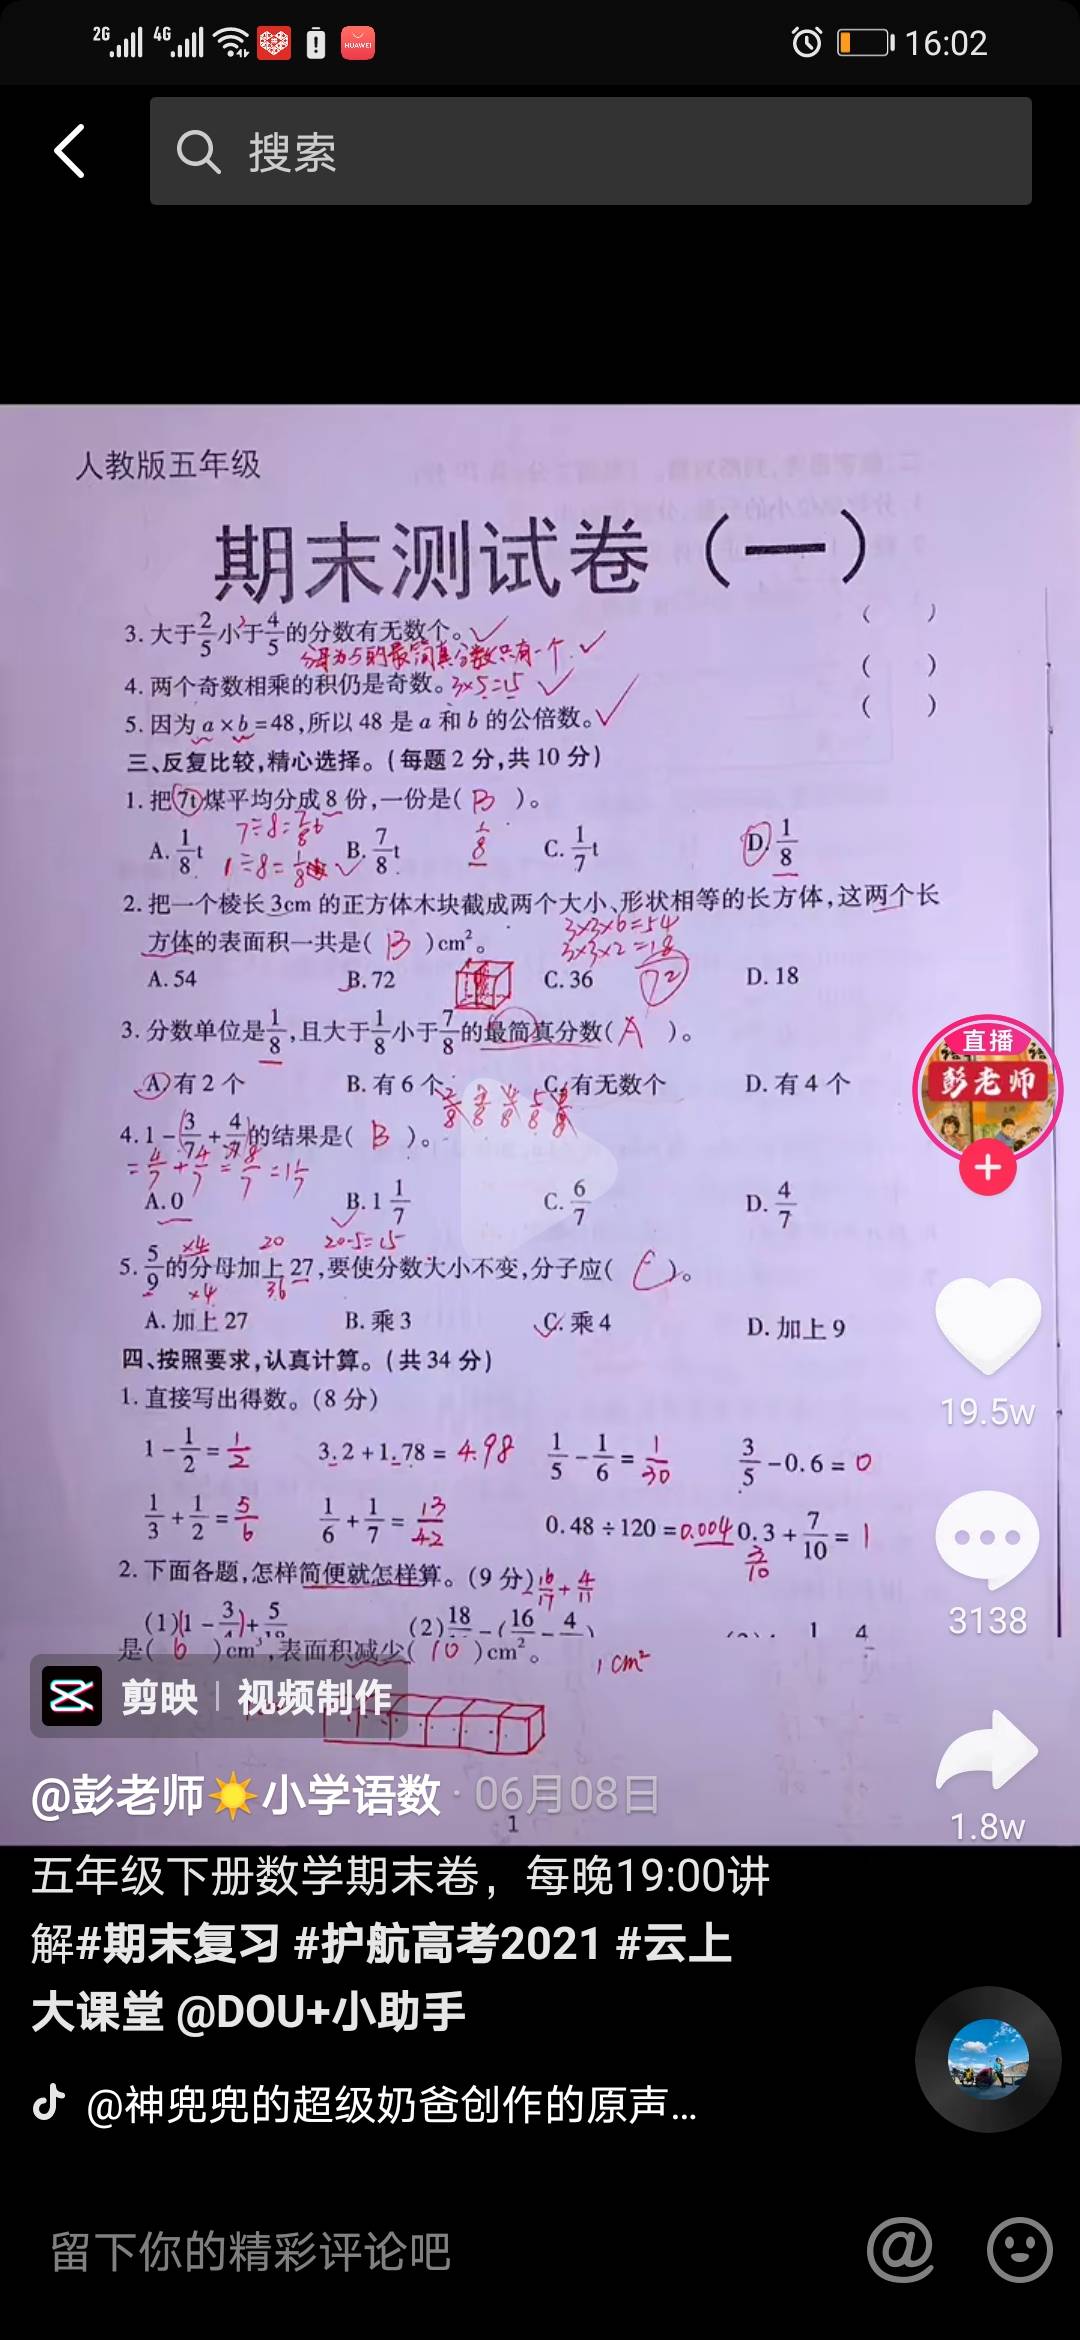 2G 4G HUAWEI 16:02
搜索
人教版五年级
期末测试卷（一）
3. 大于2/5小于4/5的分数有无数个。 ( )
分母为5的最简真分数只有一个.
4. 两个奇数相乘的积仍是奇数。 3×5=15 ( )
5. 因为 a×b=48,所以 48 是 a 和 b 的公倍数。 ( )
三、反复比较,精心选择。(每题 2 分,共 10 分)
1. 把7t煤平均分成 8 份,一份是( B )。
7÷8=7/8t 1/8
A. 1/8t B. 7/8t C. 1/7t D. 1/8
1÷8=1/8
2. 把一个棱长 3cm 的正方体木块截成两个大小、形状相等的长方体,这两个长
3×3×6=54
方体的表面积一共是( B )cm²。 3×3×2=18
A. 54 B. 72 C. 36 72 D. 18
3. 分数单位是1/8,且大于1/8小于7/8的最简真分数( A )。
A. 有 2 个 B. 有 6 个 C. 有无数个 D. 有 4 个
2/8 3/8 4/8 5/8 6/8
4. 1-(3/7+4/7)的结果是( B )。
=4/7+4/7=8/7=1 1/7
A. 0 B. 1 1/7 C. 6/7 D. 4/7
×4 20 20-5=15
5. 5/9的分母加上 27,要使分数大小不变,分子应( C )。
×4 36
A. 加上 27 B. 乘 3 C. 乘 4 D. 加上 9
四、按照要求,认真计算。(共 34 分)
1. 直接写出得数。(8 分)
1-1/2=1/2 3.2+1.78=4.98 1/5-1/6=1/30 3/5-0.6=0
1/3+1/2=5/6 1/6+1/7=13/42 0.48÷120=0.004 0.3+7/10=1
3/10
2. 下面各题,怎样简便就怎样算。(9 分) 16/17+4/11
是( 6 )cm³,表面积减少( 10 )cm²。 1cm²
剪映 | 视频制作
1
直播
彭老师
19.5w
3138
1.8w
@彭老师☀️小学语数 · 06月08日
五年级下册数学期末卷，每晚19:00讲
解#期末复习 #护航高考2021 #云上
大课堂 @DOU+小助手
@神兜兜的超级奶爸创作的原声...
留下你的精彩评论吧